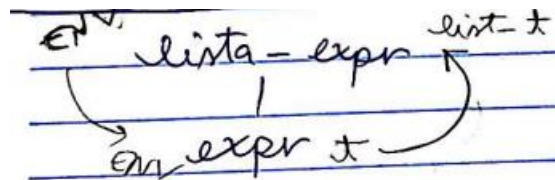 env. lista-expr list-t
env expr t